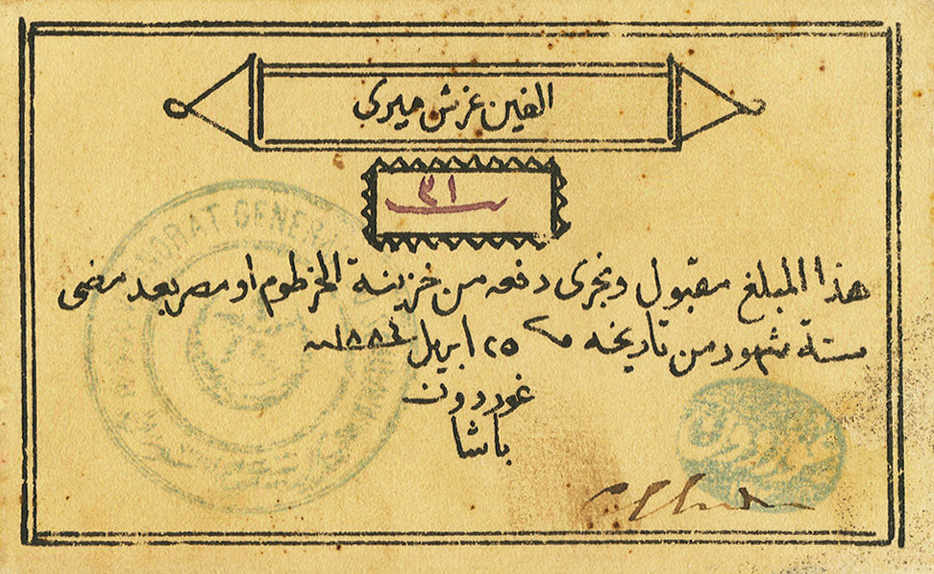 الفين غرش ميري
٣١
هذا المبلغ مقبول وتجرى دفعه من خزينة الخرطوم او مصر بعد مضى
ستة شهور من تاريخه ٢٥ ابريل ١٨٨٤
غوردون
باشا
ORAT GENERA
غوردون